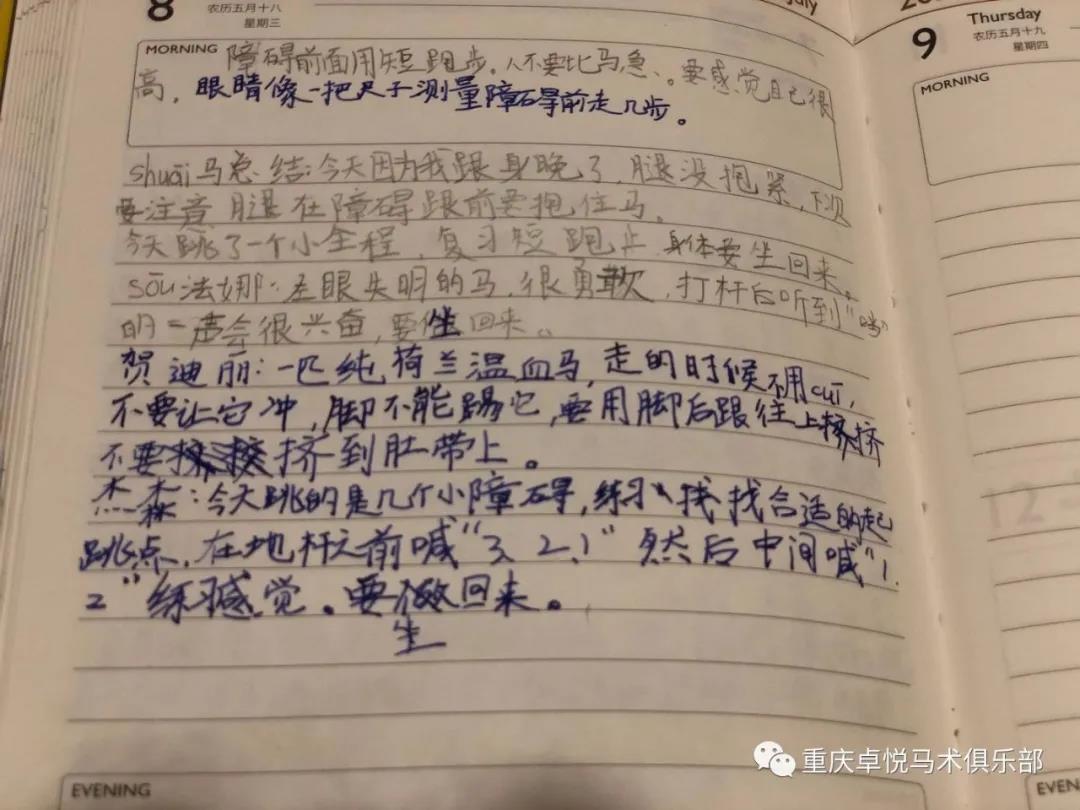 8
农历五月十八
星期三
July
MORNING
障碍前面用短跑步。人不要比马急、。要感觉自己很
高，眼睛像一把尺子测量障碍前走几步。
shuāi马总结:今天因为我跟身晚了,腿没抱紧,下次
要注意腿在障碍跟前要抱住马。
今天跳了一个小全程，复习短跑步 身体要坐回来。
sōu法娜:左眼失明的马,很勇敢,打杆后听到“当”
的一声会很兴奋,要坐回来。
贺迪丽:一匹纯荷兰温血马,走的时候不用cuī,
不要让它冲,脚不能踢它,要用脚后跟往上挤
不要挤到肚带上。
杰森:今天跳的是几个小障碍,练习找找合适的起
跳点,在地杆之前喊“3、2、1”然后中间喊“1.
2”练习感觉。要做回来。
坐
EVENING
9
Thursday
农历五月十九
星期四
MORNING
EVEN
重庆卓悦马术俱乐部